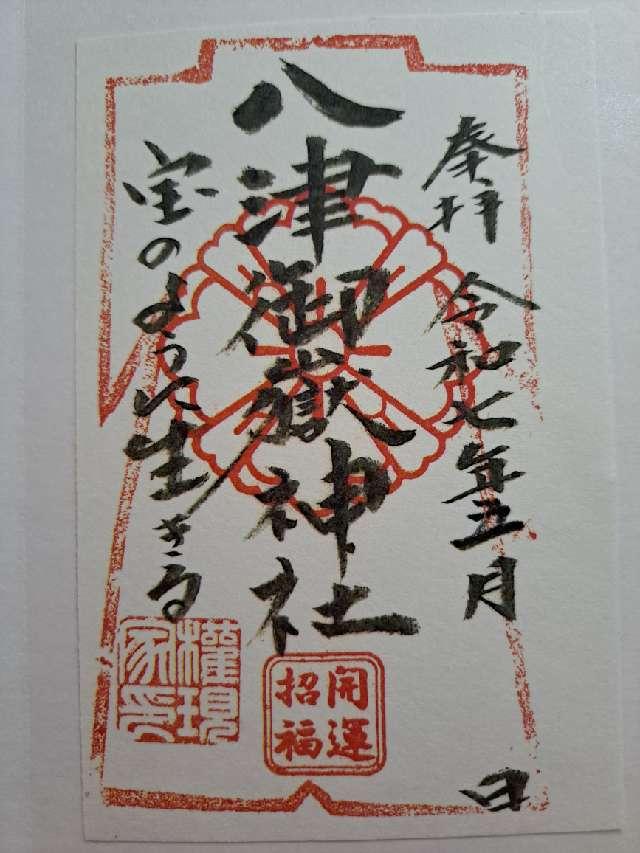 奉拝 令和七年五月 日
八津御嶽神社
宝のように生きる
開運招福